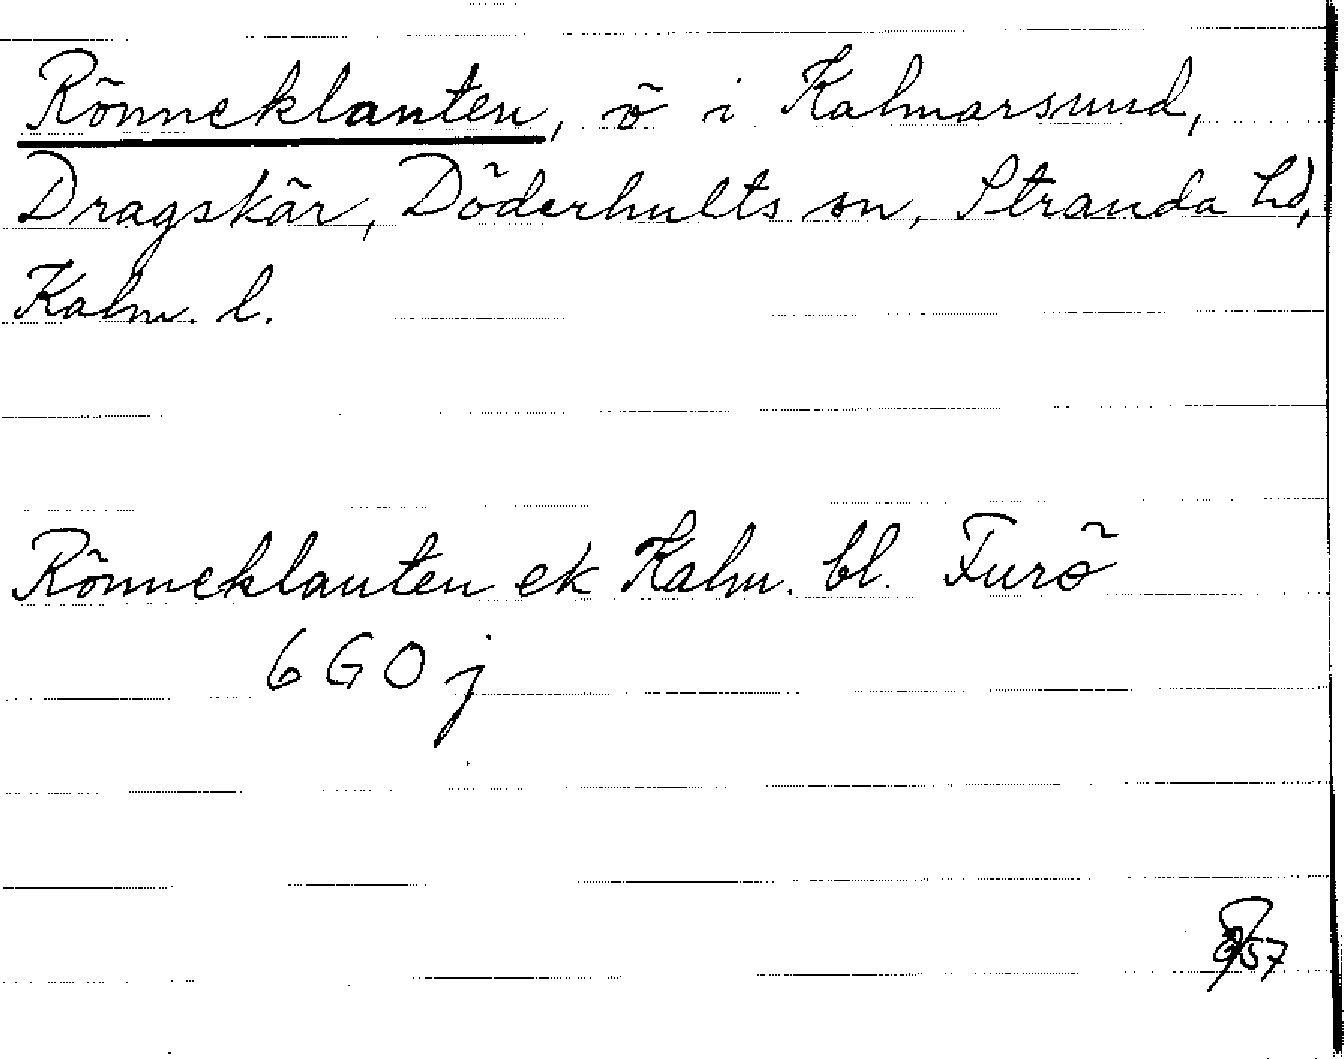 Rönneklanten, ö i Kalmarsund,
Dragskär, Döderhults sn, Stranda hd,
Kalm. l.
Rönneklanten ek Kalm. bl. Furö
6 G O j